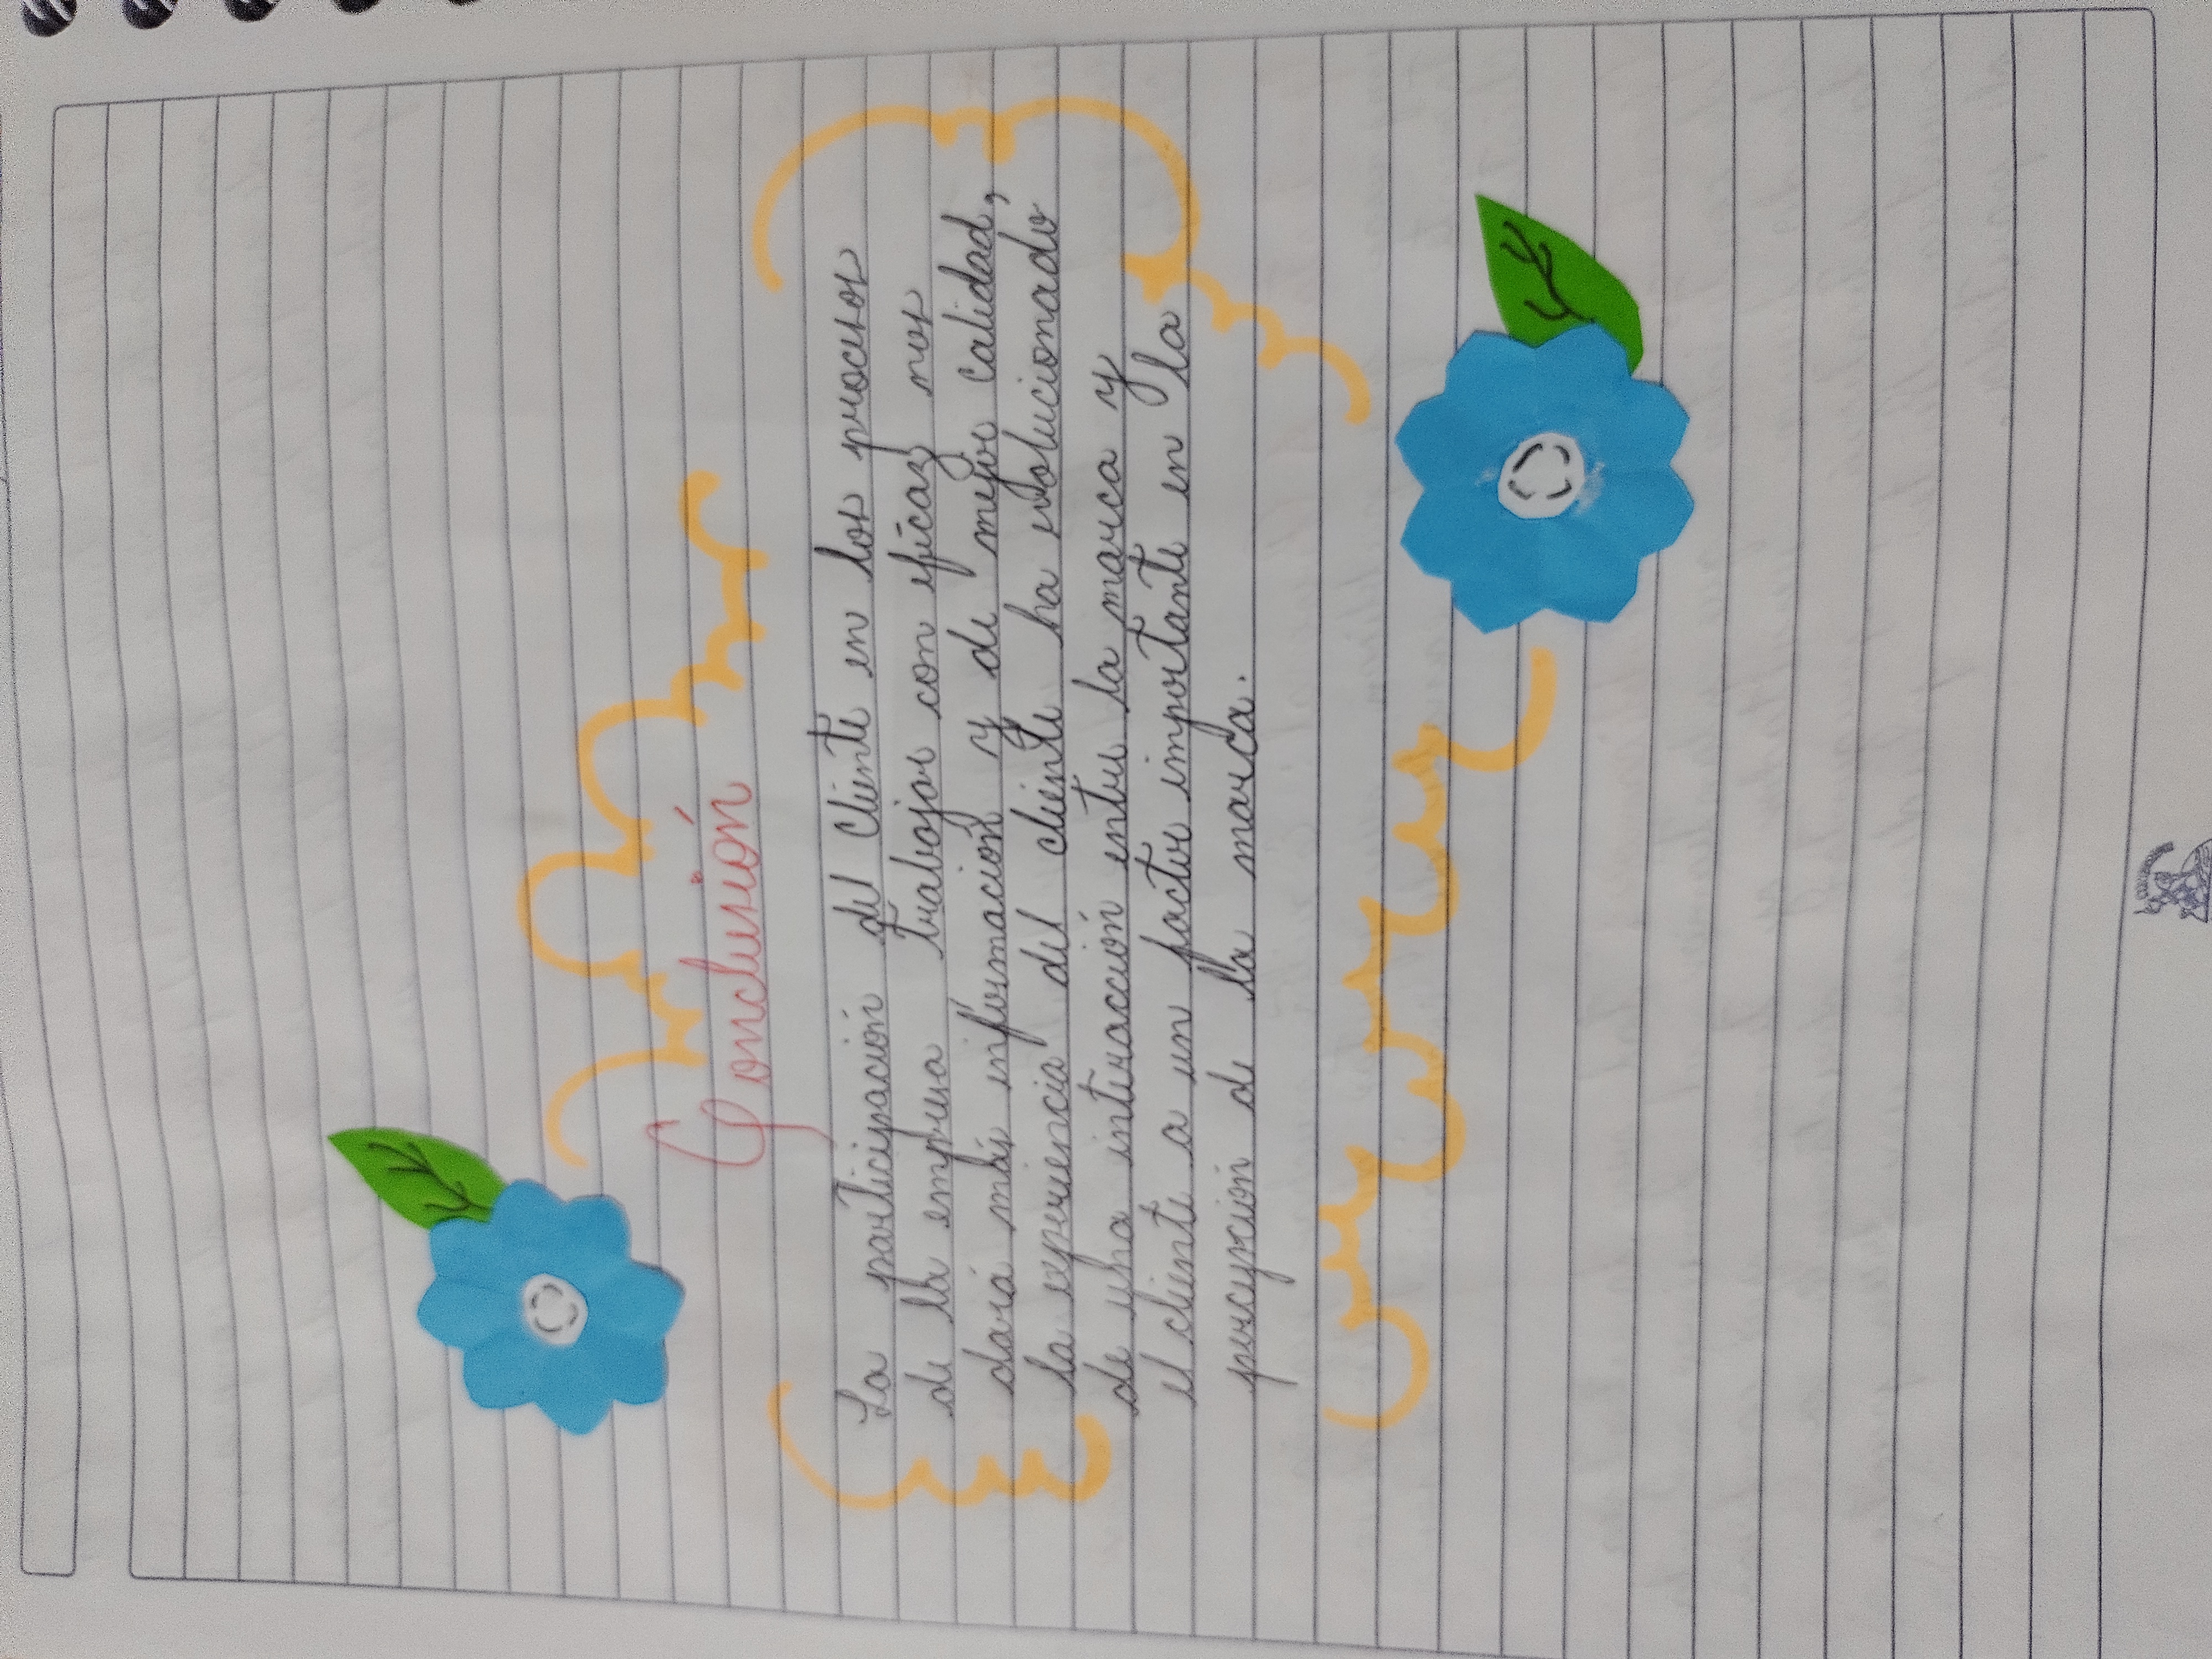 Conclusión
La participación del cliente en los procesos
de la empresa trabajar con eficaz nos
daría más información y de mejor calidad,
la experiencia del cliente ha evolucionado
de una interacción entre la marca y
el cliente a un factor importante en la
percepción de la marca.